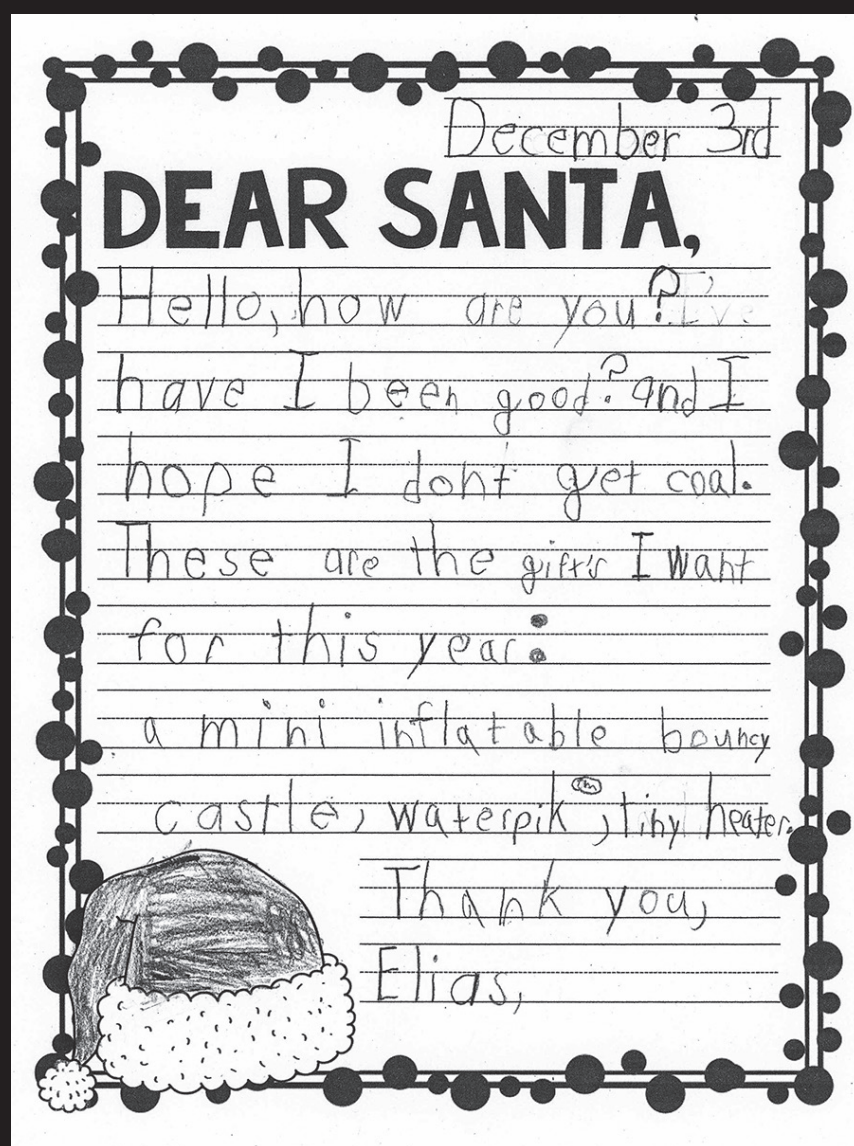 December 3rd
DEAR SANTA,
Hello, how are you? I've
have I been good? and I
hope I dont get coal.
These are the gift's I want
for this year:
a mini inflatable bouncy
castle, waterpik ™, tiny heater.
Thank you,
Elias,